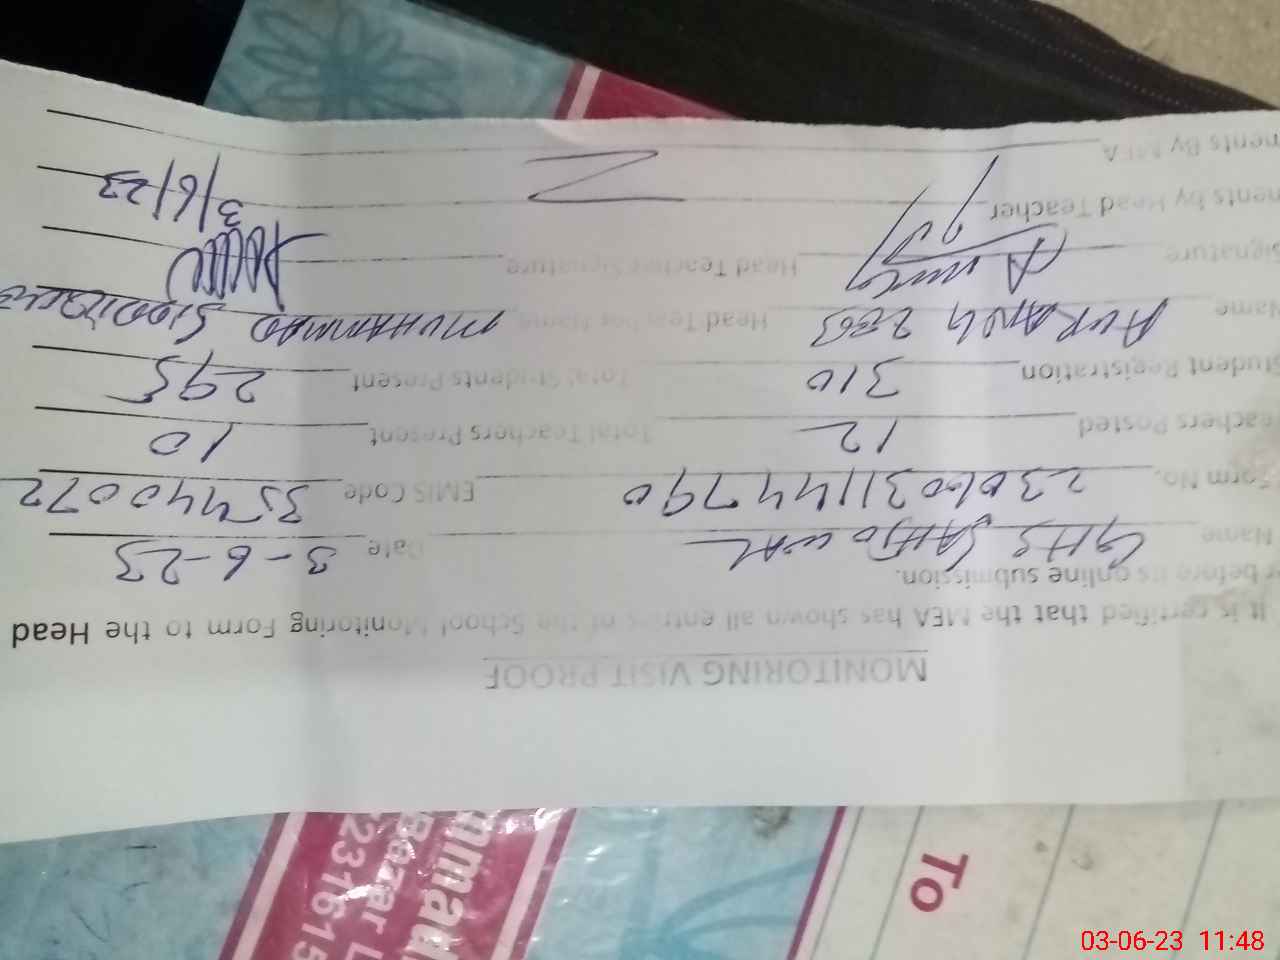 MONITORING VISIT PROOF
It is certified that the MEA has shown all entries of the School Monitoring Form to the Head
before its online submission.
Name GHS Date 3-6-23
Form No. EMIS Code 35440072
Teachers Posted 12 Total Teachers Present 10
Student Registration 310 Total Students Present 295
Name AURANG ZEB Head Teacher Name MUHAMMAD
Signature Head Teacher Signature
ments by Head Teacher 3/6/23
ments By MEA
To
Bazar L
2231615
03-06-23 11:48